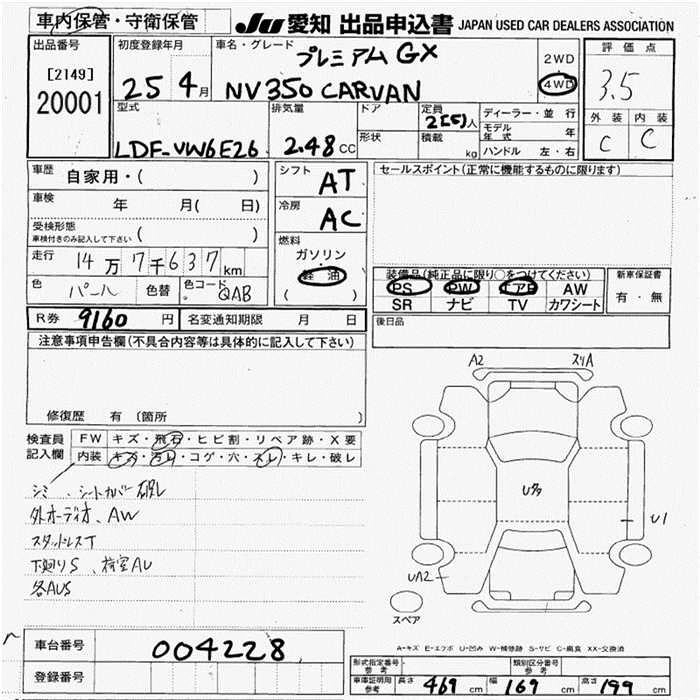 車内保管・守衛保管
JU 愛知 出品申込書 JAPAN USED CAR DEALERS ASSOCIATION
出品番号
[2149]
20001
初度登録年月
25 4月
車名・グレード
プレミアム GX
NV350 CARVAN
2WD
4WD
評価点
3.5
外装 内装
C C
型式
LDF-VW6E26
排気量
2.48 CC
ドア
形状
定員
2[5]人
積載
kg
ディーラー・並行
モデル年式 年
ハンドル 左・右
車歴 自家用・( )
車検 年 月( 日)
受検形態
車検付きのみ記入して下さい ( )
走行 14万7千637km
色 パール 色替 色コード QAB
シフト AT
冷房 AC
燃料
ガソリン
軽油
( )
セールスポイント(正常に機能するものに限ります)
装備品(純正品に限り○をつけてください)
PS PW エアB AW
SR ナビ TV カワシート
新車保証書
有・無
R券 9160 円 名変通知期限 月 日
後日品
注意事項申告欄(不具合内容等は具体的に記入して下さい)
修復歴 有 (箇所 )
検査員記入欄
FW キズ・飛石・ヒビ割・リペア跡・X要
内装 キズ・汚レ・コゲ・穴・スレ・キレ・破レ
シミ、シートカバー破レ
外オーディオ、AW
スタッドレスT
下廻りS、荷室AU
各AUS
A2 スリA
Uタ
U1
UA2
スペア
A-キズ E-エクボ U-凹み W-補修跡 S-サビ C-腐食 XX-交換済
車台番号 004228
登録番号
形式指定番号 参考
類別区分番号 参考
車庫証明用参考 長さ 469 cm 幅 169 cm 高さ 199 cm